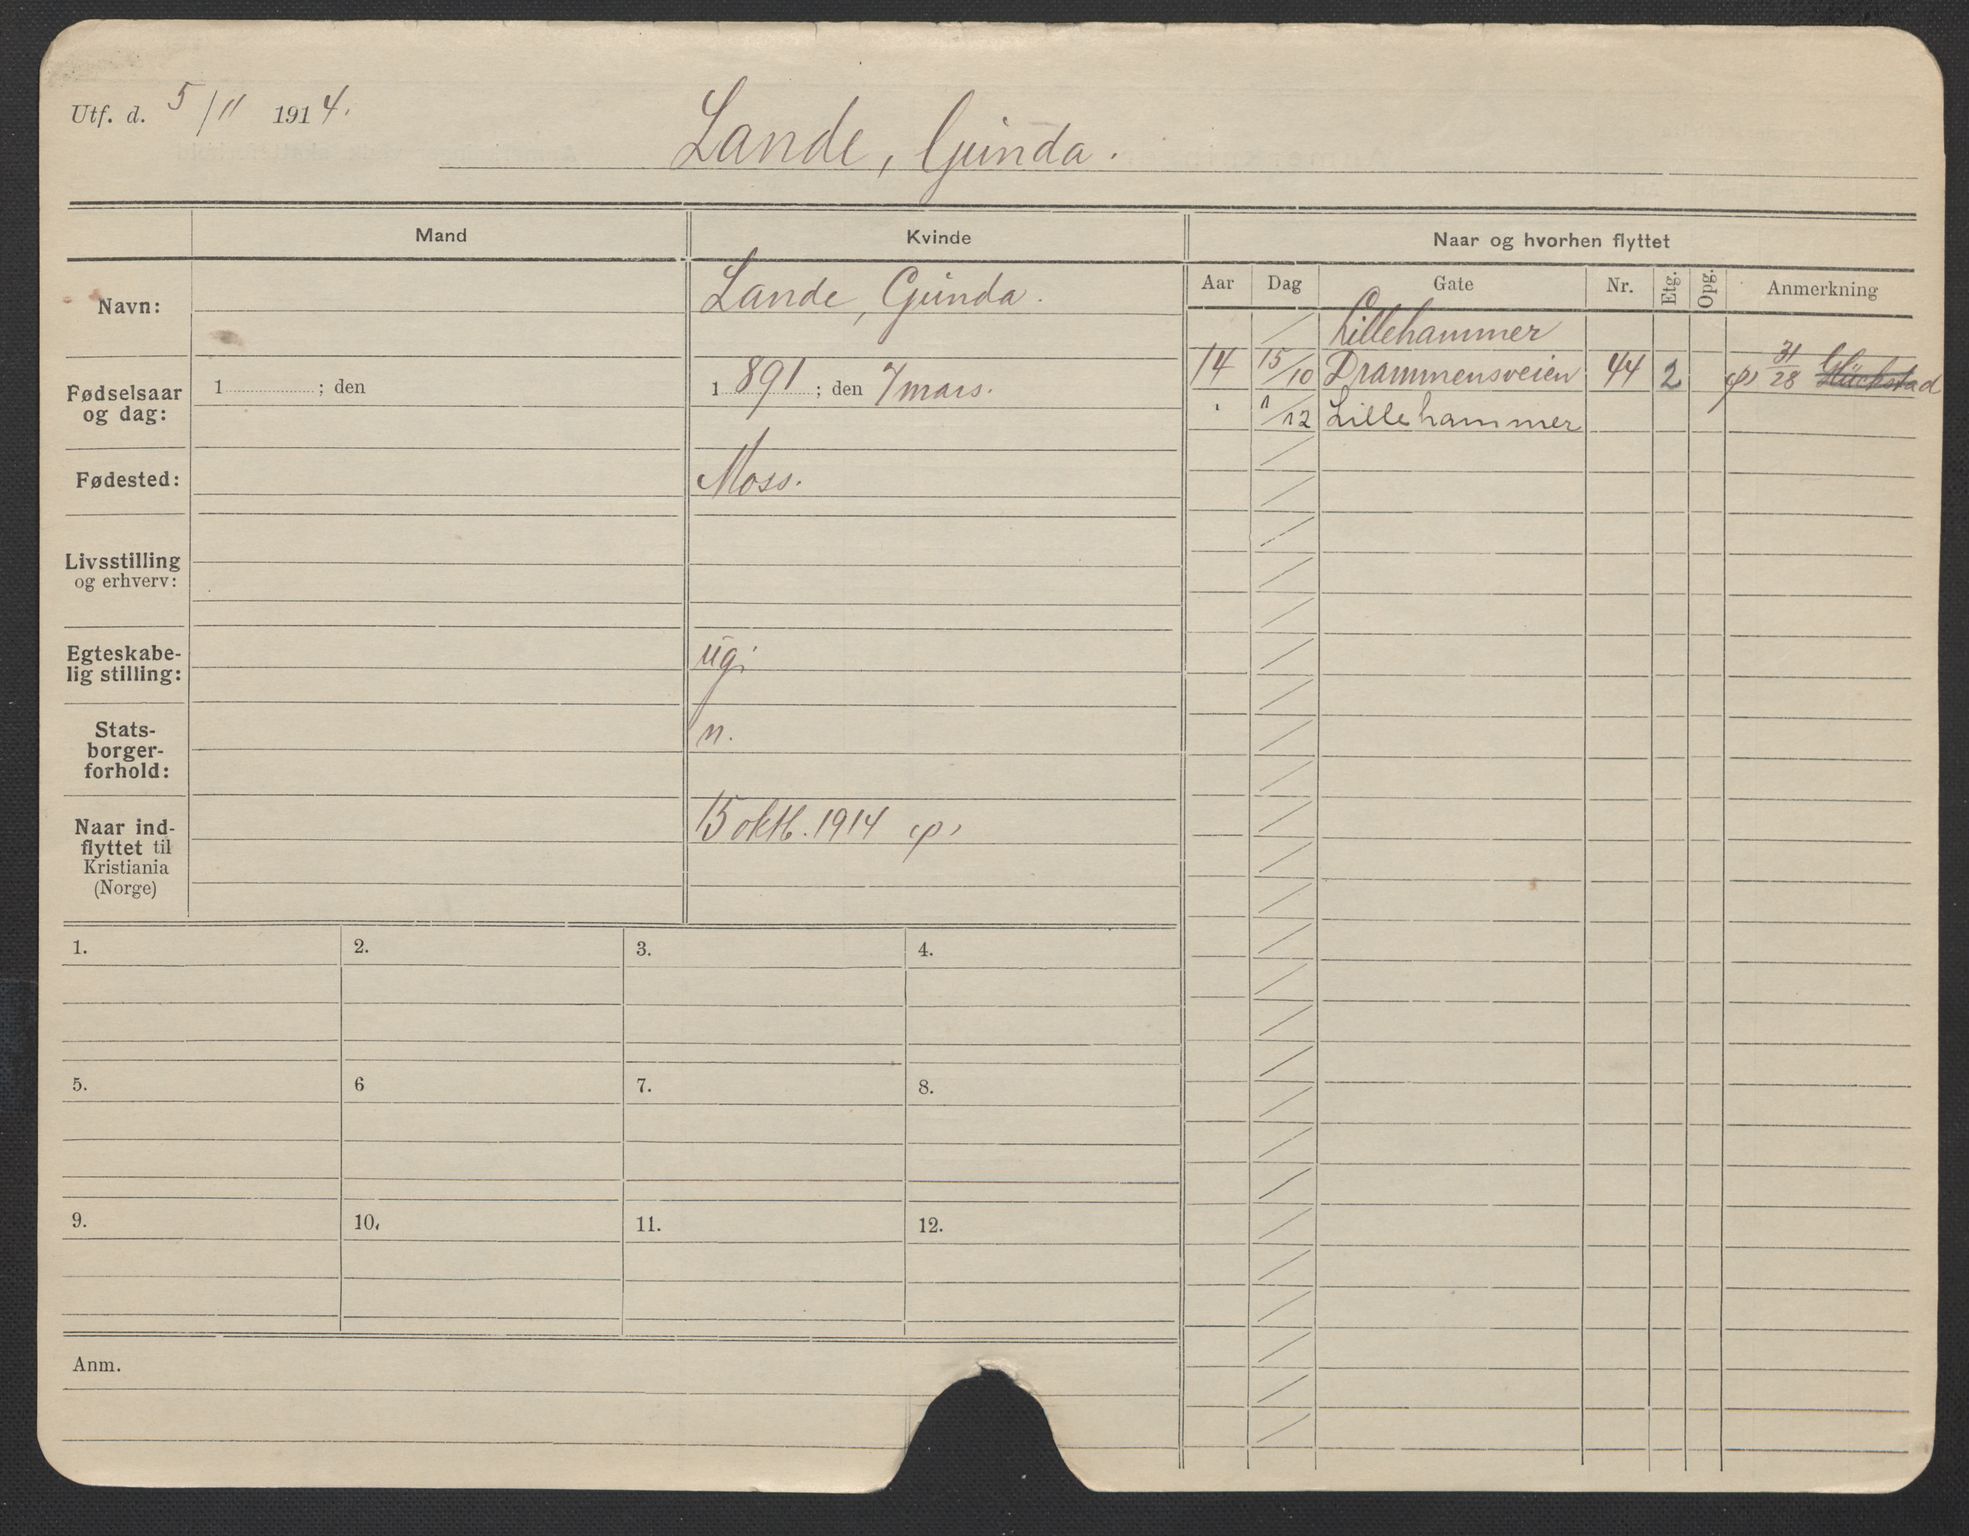 Utf. d. 5/11 1914.
Lande, Gunda.
Mand
Kvinde
Naar og hvorhen flyttet
Navn:
Lande, Gunda.
Aar Dag Gate Nr. Etg. Opg. Anmerkning
/ Lillehammer
14 15/10 Drammensveien 44 2 31/28
" 1/12 Lillehammer
Fødselsaar
og dag:
1 ; den
1 891 ; den 7 mars.
Fødested:
Moss.
Livsstilling
og erhverv:
Egteskabe-
lig stilling:
ug.
Stats-
borger-
forhold:
n.
Naar ind-
flyttet til
Kristiania
(Norge)
15 oktb. 1914
1. 2. 3. 4.
5. 6 7. 8.
9. 10. 11. 12.
Anm.